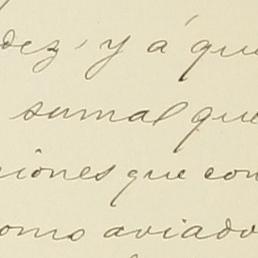 dez, y á que
sumal que
ciones que con
como aviado